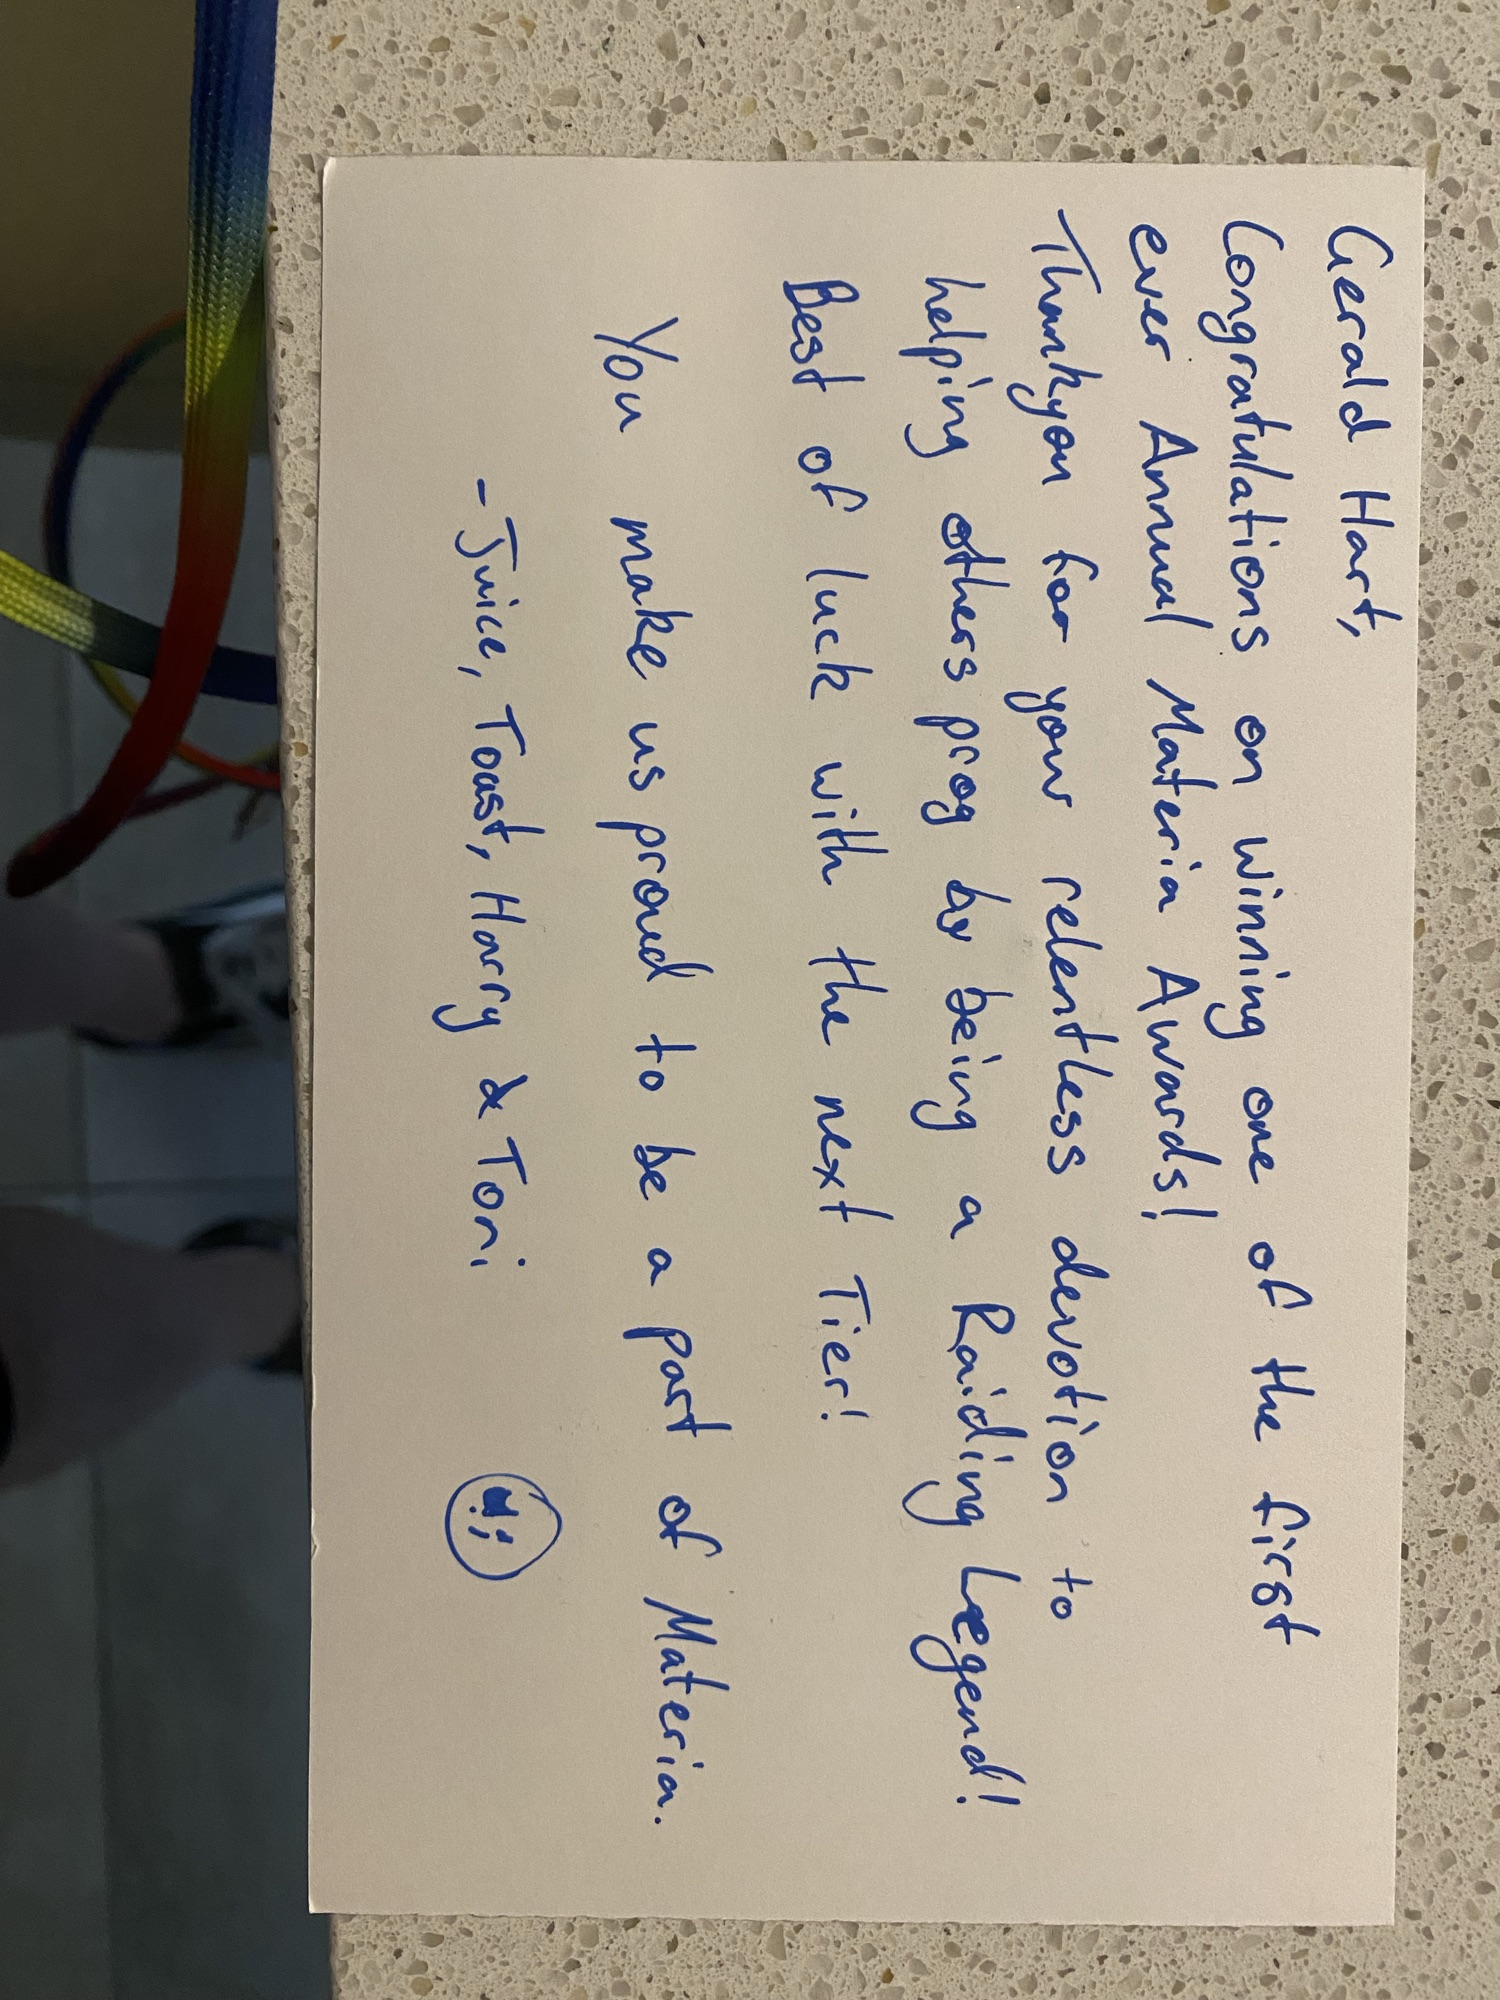 Gerald Hart,
Congratulations on winning one of the first
ever Annual Materia Awards!
Thankyou for your relentless devotion to
helping others prog by being a Raiding Legend!
Best of luck with the next Tier!
You make us proud to be a part of Materia.
- Juice, Toast, Harry & Tori